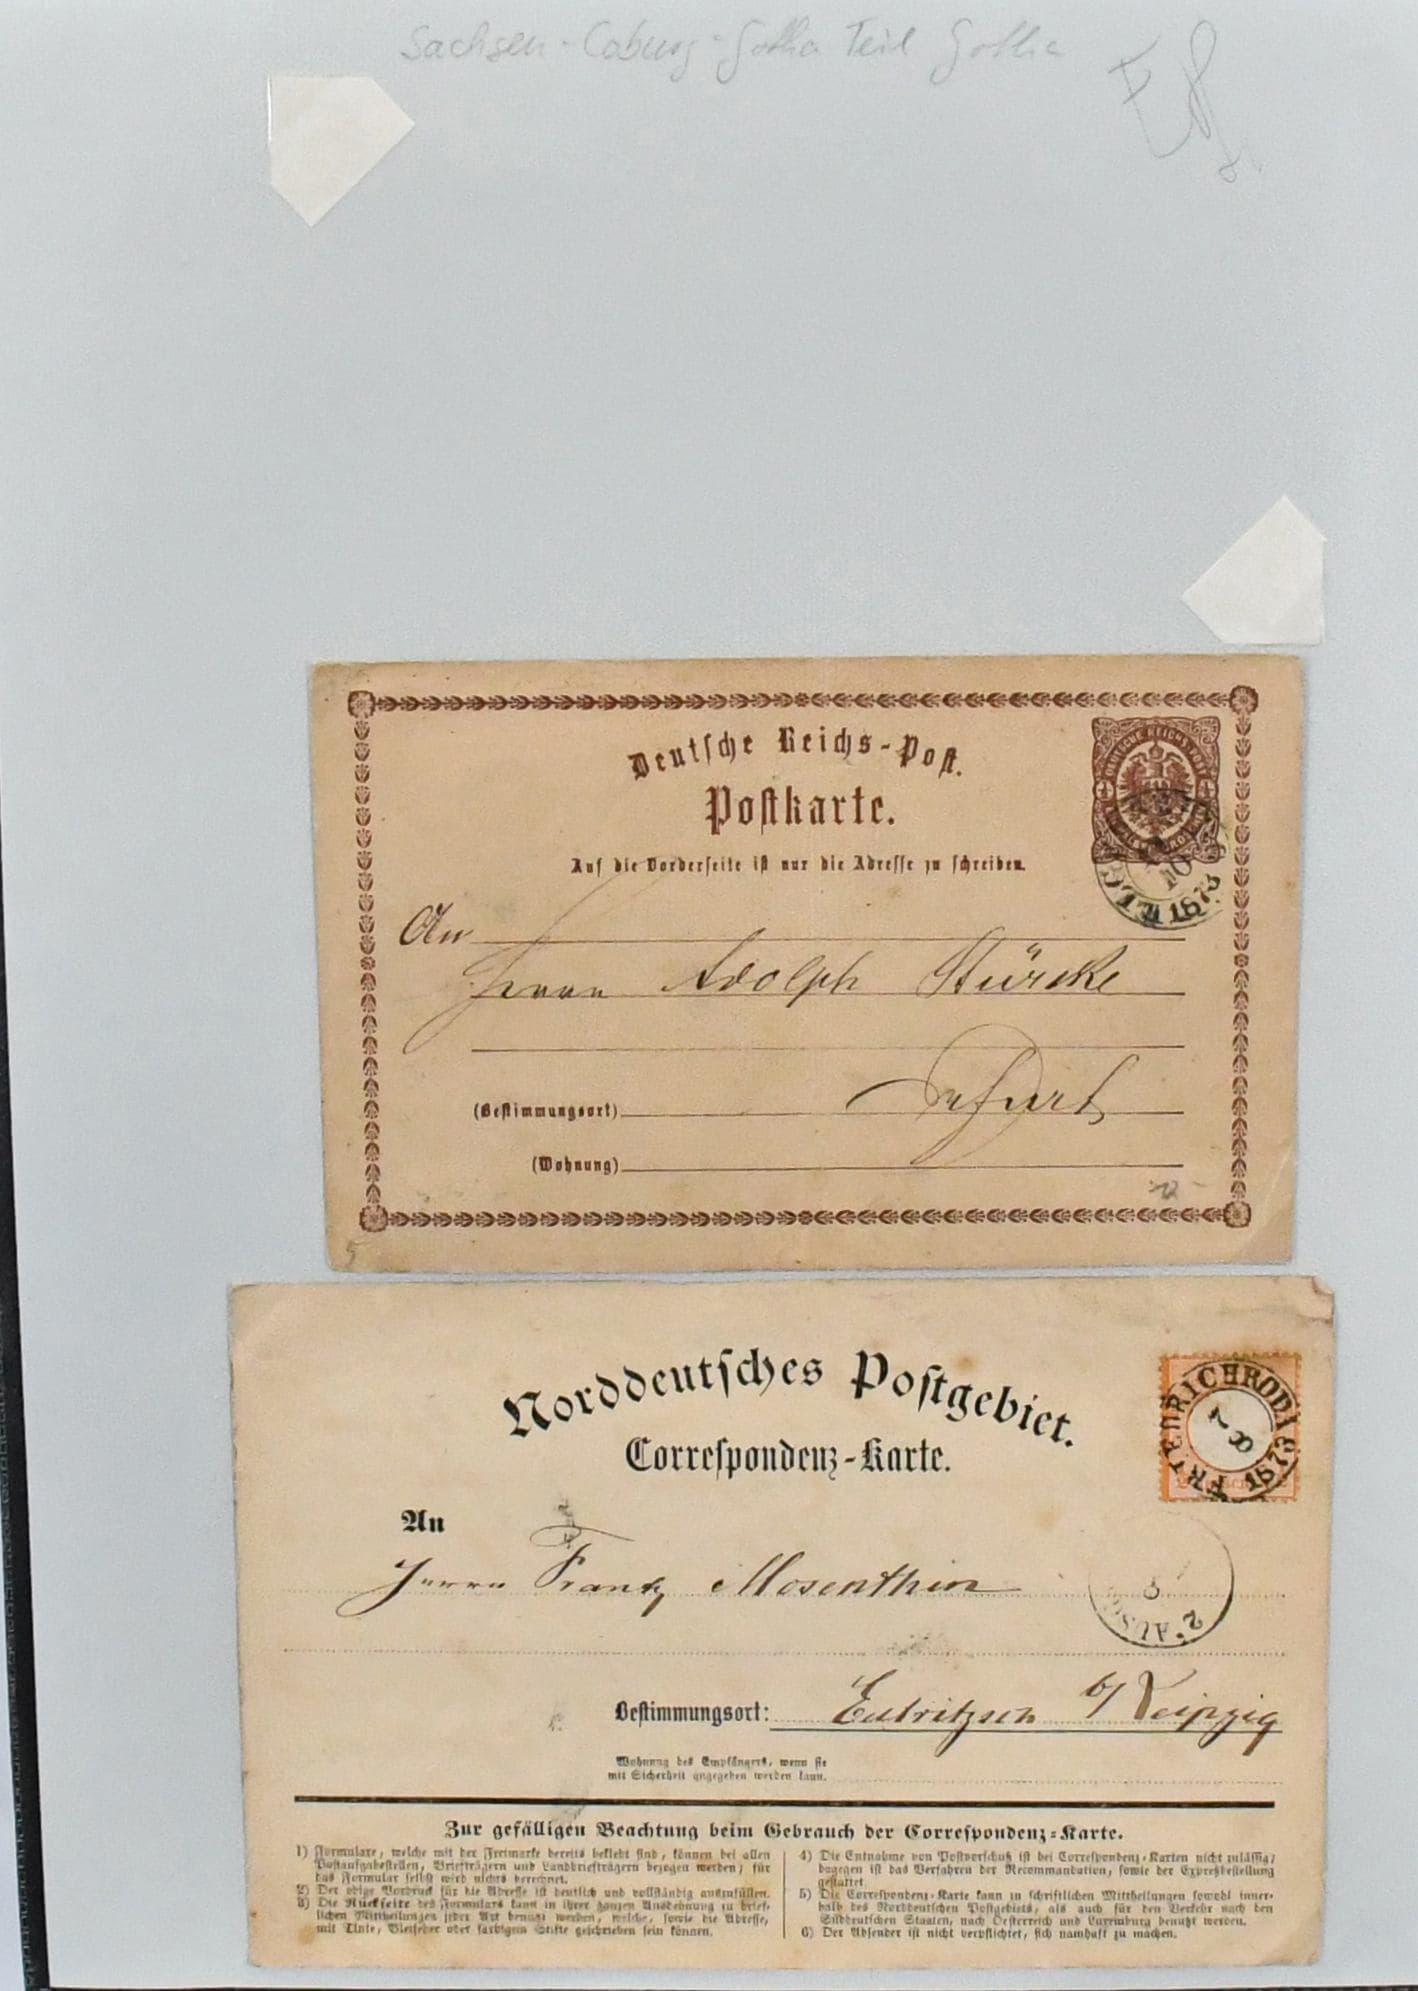 Sachsen-Coburg-Gotha Teil Gotha
Deutsche Reichs-Post.
Postkarte.
Auf die Vorderseite ist nur die Adresse zu schreiben.
DEUTSCHE REICHS-POST
1873
An
Herrn Adolph Stürcke
(Bestimmungsort) Erfurt
(Wohnung)
Norddeutsches Postgebiet.
Correspondenz-Karte.
FRIEDRICHRODA
7 8
1873
An
Herrn Frantz Mosenthin
2. AUSG
Bestimmungsort: Eutritzsch b/ Leipzig
Wohnung des Empfängers, wenn sie
mit Sicherheit angegeben werden kann.
Zur gefälligen Beachtung beim Gebrauch der Correspondenz-Karte.
1) Formulare, welche mit der Freimarke bereits beklebt sind, können bei allen
Postaufgabestellen, Briefträgern und Landbriefträgern bezogen werden; für
das Formular selbst wird nichts berechnet.
2) Der obige Vordruck für die Adresse ist deutlich und vollständig auszufüllen.
3) Die Rückseite des Formulars kann in ihrer ganzen Ausdehnung zu brief-
lichen Mittheilungen jeder Art benutzt werden, welche, sowie die Adresse,
mit Tinte, Bleifeder oder farbigem Stifte geschrieben sein können.
4) Die Entnahme von Postvorschuß ist bei Correspondenz-Karten nicht zulässig;
dagegen ist das Verfahren der Recommandation, sowie der Expreßbestellung
gestattet.
5) Die Correspondenz-Karte kann zu schriftlichen Mittheilungen sowohl inner-
halb des Norddeutschen Postgebiets, als auch für den Verkehr nach den
Süddeutschen Staaten, nach Oesterreich und Luxemburg benutzt werden.
6) Der Absender ist nicht verpflichtet, sich namhaft zu machen.